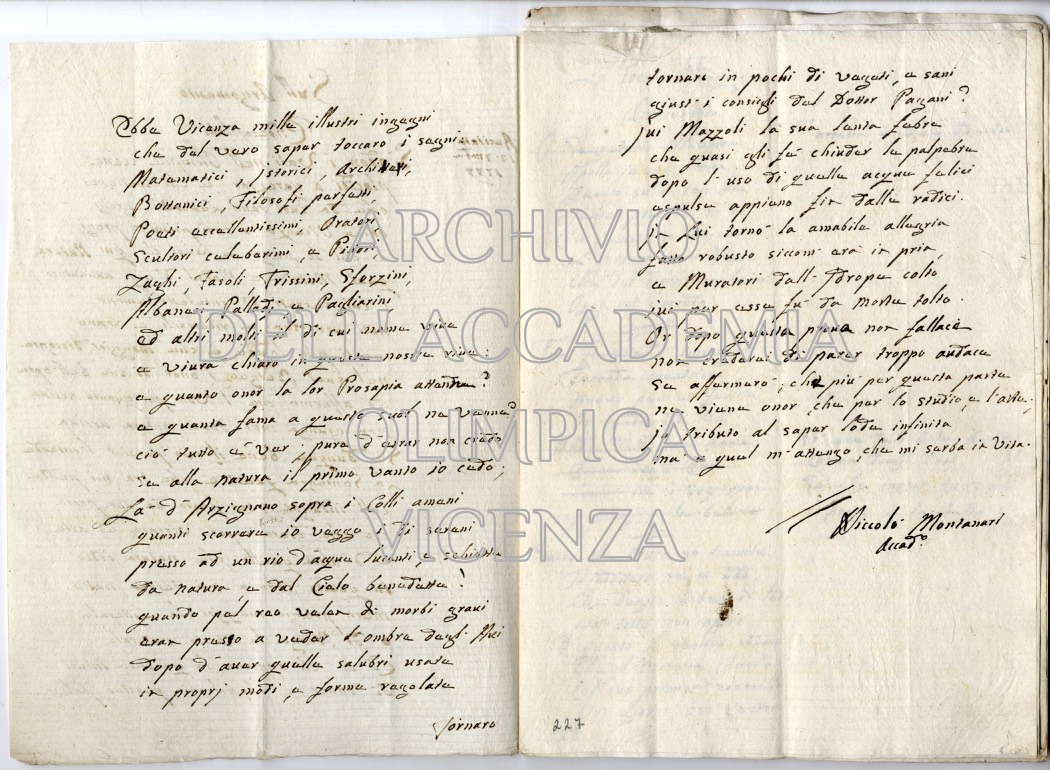 Ebbe Vicenza mille illustri ingegni
che del vero saper toccaro i segni
Matematici, Istorici, Architetti,
Bottanici, Filosofi perfetti,
Poeti eccellentissimi, Oratori,
Scultori celeberimi, e Pitori,
Zaghi, Fasoli, Trissini, Sforzini,
Albanesi Palladi, e Pagliarini
ed altri molti il di cui nome vive
e viverà chiaro in queste nostre rive:
e quanto onor la lor Prosapia attenne?
e quanta fama a questo suol ne venne?
ciò tutto è ver, pure d'errar non credo
se alla natura il primo vanto io cedo;
Là d'Arzignano sopra i Colli ameni
quanti scorrere io veggo i dì sereni
presso ad un rio d'acque lucenti, e schiette
da natura, e dal Cielo benedette!
quando pel reo velen di morbi gravi
eran presso a veder l'ombre degli Avi
dopo d'aver quelle salubri usate
in proprj modi, e forma regolata
tornaro
tornare in pochi dì vegeti, e sani
giust' i consigli del Dottor Pagani?
qui Mazzoli la sua lenta febre
che quasi gli fè chiuder le palpebre
dopo l'uso di quelle acque felici
espulse appieno fin dalle radici.
in Lui tornò la amabile allegria
fatto robusto siccom' era in pria,
e Muratori dall' Idrope colto
ivi per esse fù da morte tolto.
Or dopo queste prove non fallace
non crederei di parer troppo audace
Se affermerò, che più per questa parte
ne viene onor, che per lo studio, e l'arte.
io tributo al saper lode infinita
ma a quel m'attengo, che mi serba in Vita.
Niccolò Montanari
Accad.º
227
ARCHIVIO
DELL'ACCADEMIA
OLIMPICA
VICENZA